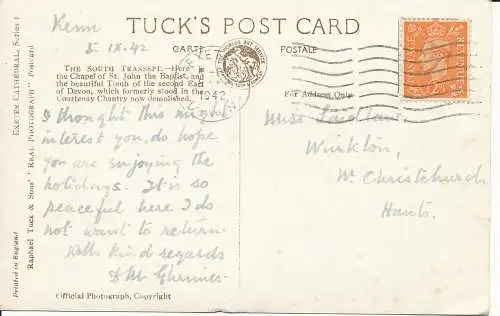 Kenn
5 IX.42
TUCK'S POST CARD
CARTE
POSTALE
THE SOUTH TRANSEPT.—Here
the Chapel of St. John the Baptist, and
the beautiful Tomb of the second Earl
of Devon, which formerly stood in the
Courtenay Chantry now demolished.
For Address Only
EXETER
1942
I thought this might
interest you, do hope
you are enjoying the
holidays. It is so
peaceful here I do
not want to return.
With kind regards
D M
Miss
Winkton,
Nr Christchurch
Hants.
Official Photograph, Copyright
EXETER CATHEDRAL, Series 1
Raphael Tuck & Sons' "REAL PHOTOGRAPH" Postcard
Printed in England